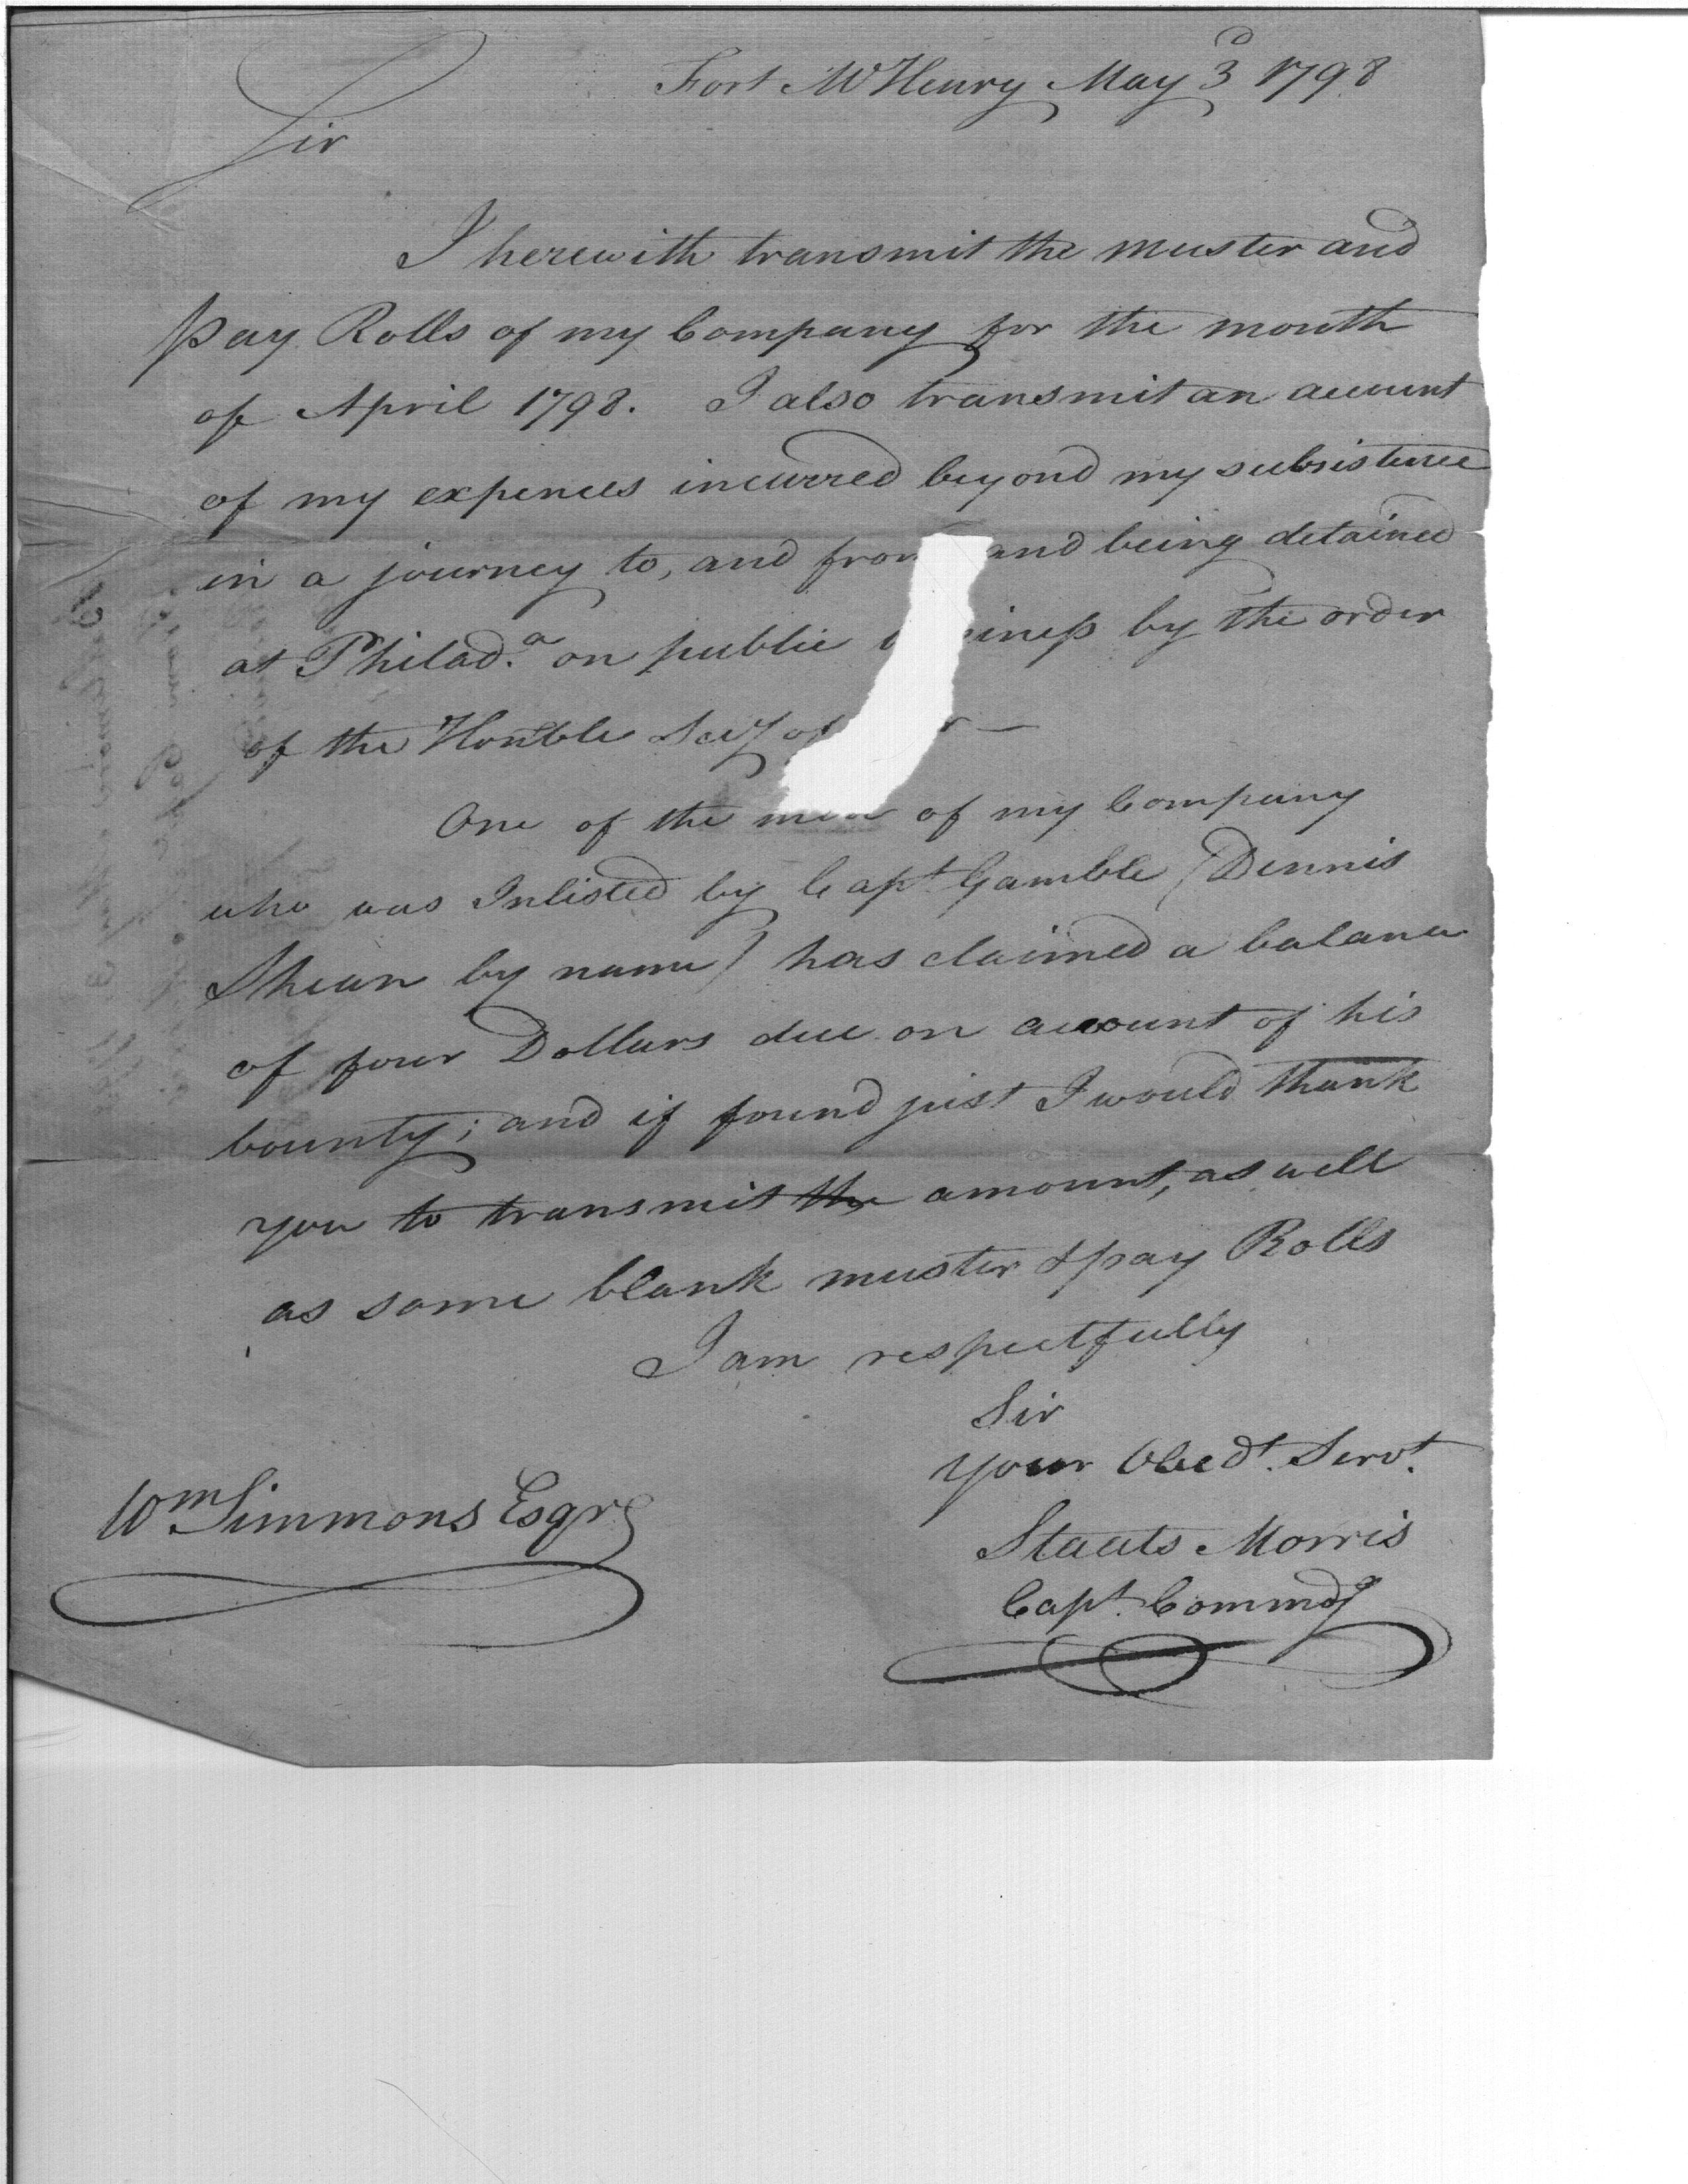 Fort McHenry May 3d 1798
Sir
I herewith transmit the muster and
Pay Rolls of my Company for the month
of April 1798. I also transmit an account
of my expences incurred beyond my subsistence
in a journey to, and from and being detained
at Philada. on public iness by the order
of the Honble Secy of r —
One of the men of my Company
who was Inlisted by Capt Gamble (Dennis
Shean by name) has claimed a balance
of four Dollars due on account of his
bounty; and if found just I would thank
you to transmit the amount, as well
as some blank muster & pay Rolls
I am respectfully
Sir
your Obedt. Servt.
Staats Morris
Capt. Commdg
Wm Simmons Esqr